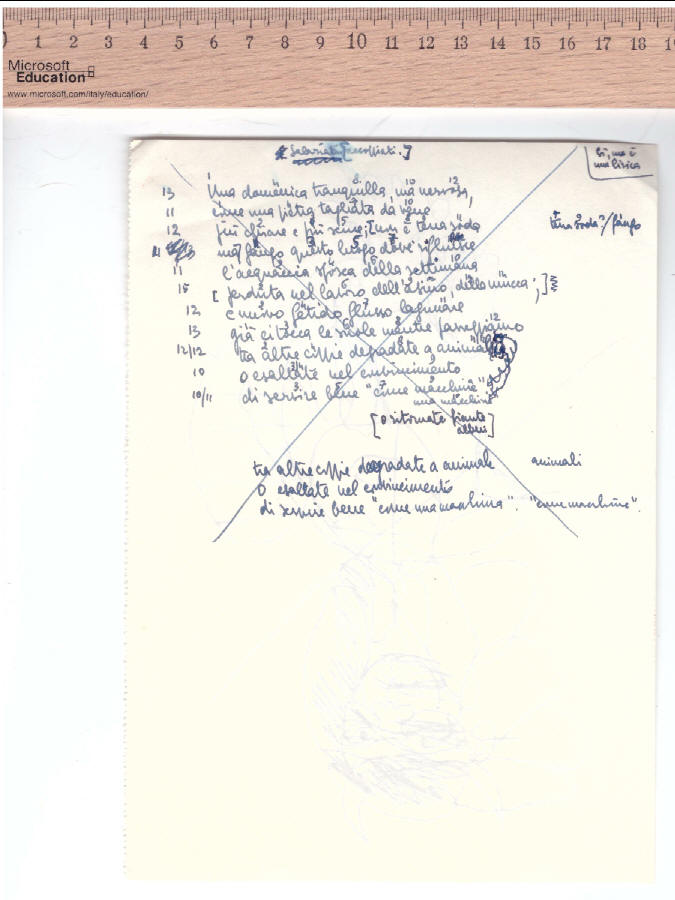 0 1 2 3 4 5 6 7 8 9 10 11 12 13 14 15 16 17 18 19
Microsoft
Education
www.microsoft.com/italy/education/
sì, ma è
una lirica
13 Una domenica tranquilla, ma nervosa,
11 come una pietra tagliata da vene
12 più chiare e più scure; [non è terra soda
terra soda?/fango
11 ma] fango questo luogo dove rifluttre
11 l'acquaccia sporca della settimana
15 [perduta nel lavoro dell'asino, della mucca,]
12 e nuovo fetido flusso lagunare
13 già ci tocca le suole mentre passeggiamo
12/12 tra altre coppie degradate a animali
10 o esaltate nel convincimento
10/11 di servire bene "come macchine"
una macchina"
[o ritornate piante
alberi]
tra altre coppie degradate a animale animali
o esaltate nel convincimento
di servire bene "come una macchina". "come macchine".